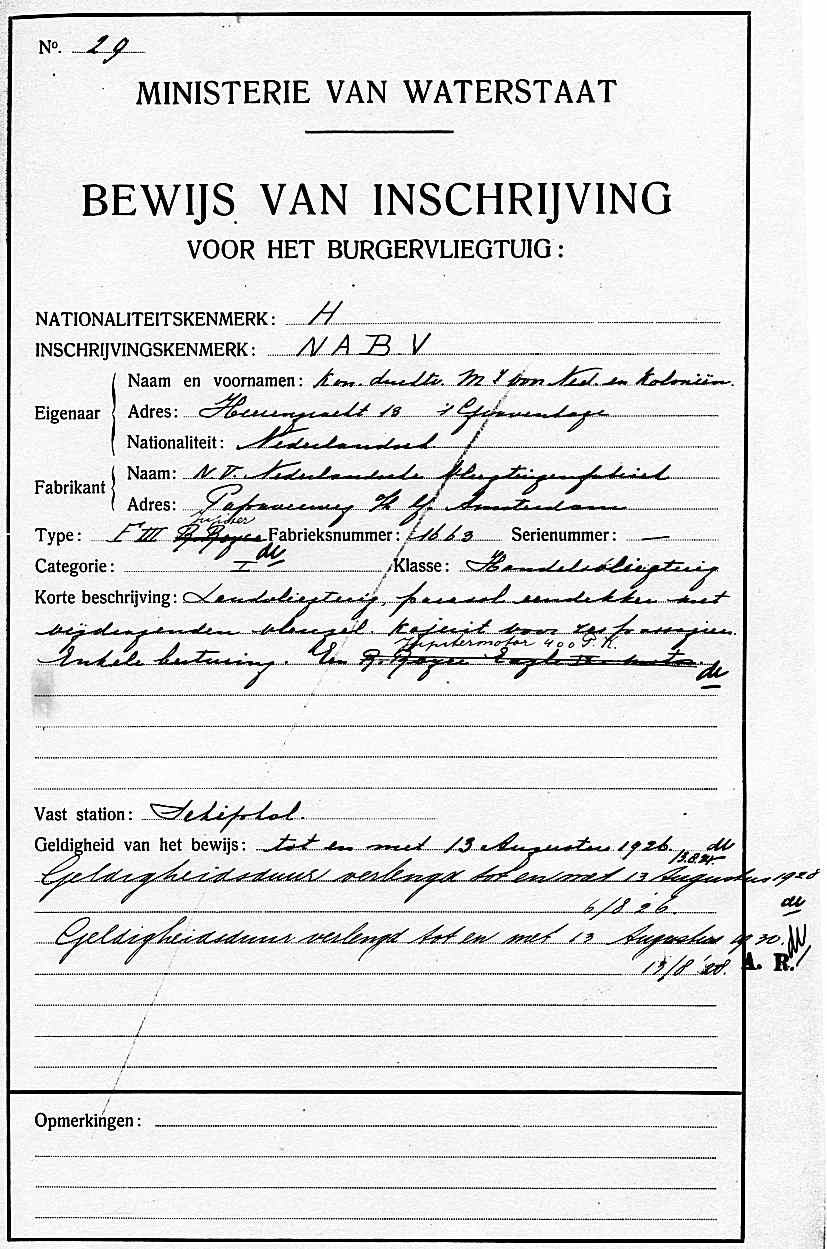 No. 29
MINISTERIE VAN WATERSTAAT
BEWIJS VAN INSCHRIJVING
VOOR HET BURGERVLIEGTUIG:
NATIONALITEITSKENMERK: H
INSCHRIJVINGSKENMERK: N A B V
Eigenaar
Naam en voornamen: Kon. Luchtv. My voor Ned. en Koloniën.
Adres: Heerengracht 13 's Gravenhage
Nationaliteit: Nederlandsch
Fabrikant
Naam: N.V. Nederlandsche Vliegtuigenfabriek
Adres: Papaverweg Amsterdam
Jupiter
Type: F III R. Royce Fabrieksnummer: 1663 Serienummer: —
de
Categorie: I Klasse: Handelsvliegtuig
Korte beschrijving: Landvliegtuig, parasol eendekker met
vrijdragenden vleugel. Kajuit voor zes passagiers.
Jupitermotor 400 P.K.
Enkele besturing. Een R. Royce Eagle IX motor. de
Vast station: Schiphol.
Geldigheid van het bewijs: tot en met 13 Augustus 1926 de
13.8.24.
Geldigheidsduur verlengd tot en met 13 Augustus 1928
6/8 26. de
Geldigheidsduur verlengd tot en met 13 Augustus 1930. de
13/8 '28. A. R.
Opmerkingen: